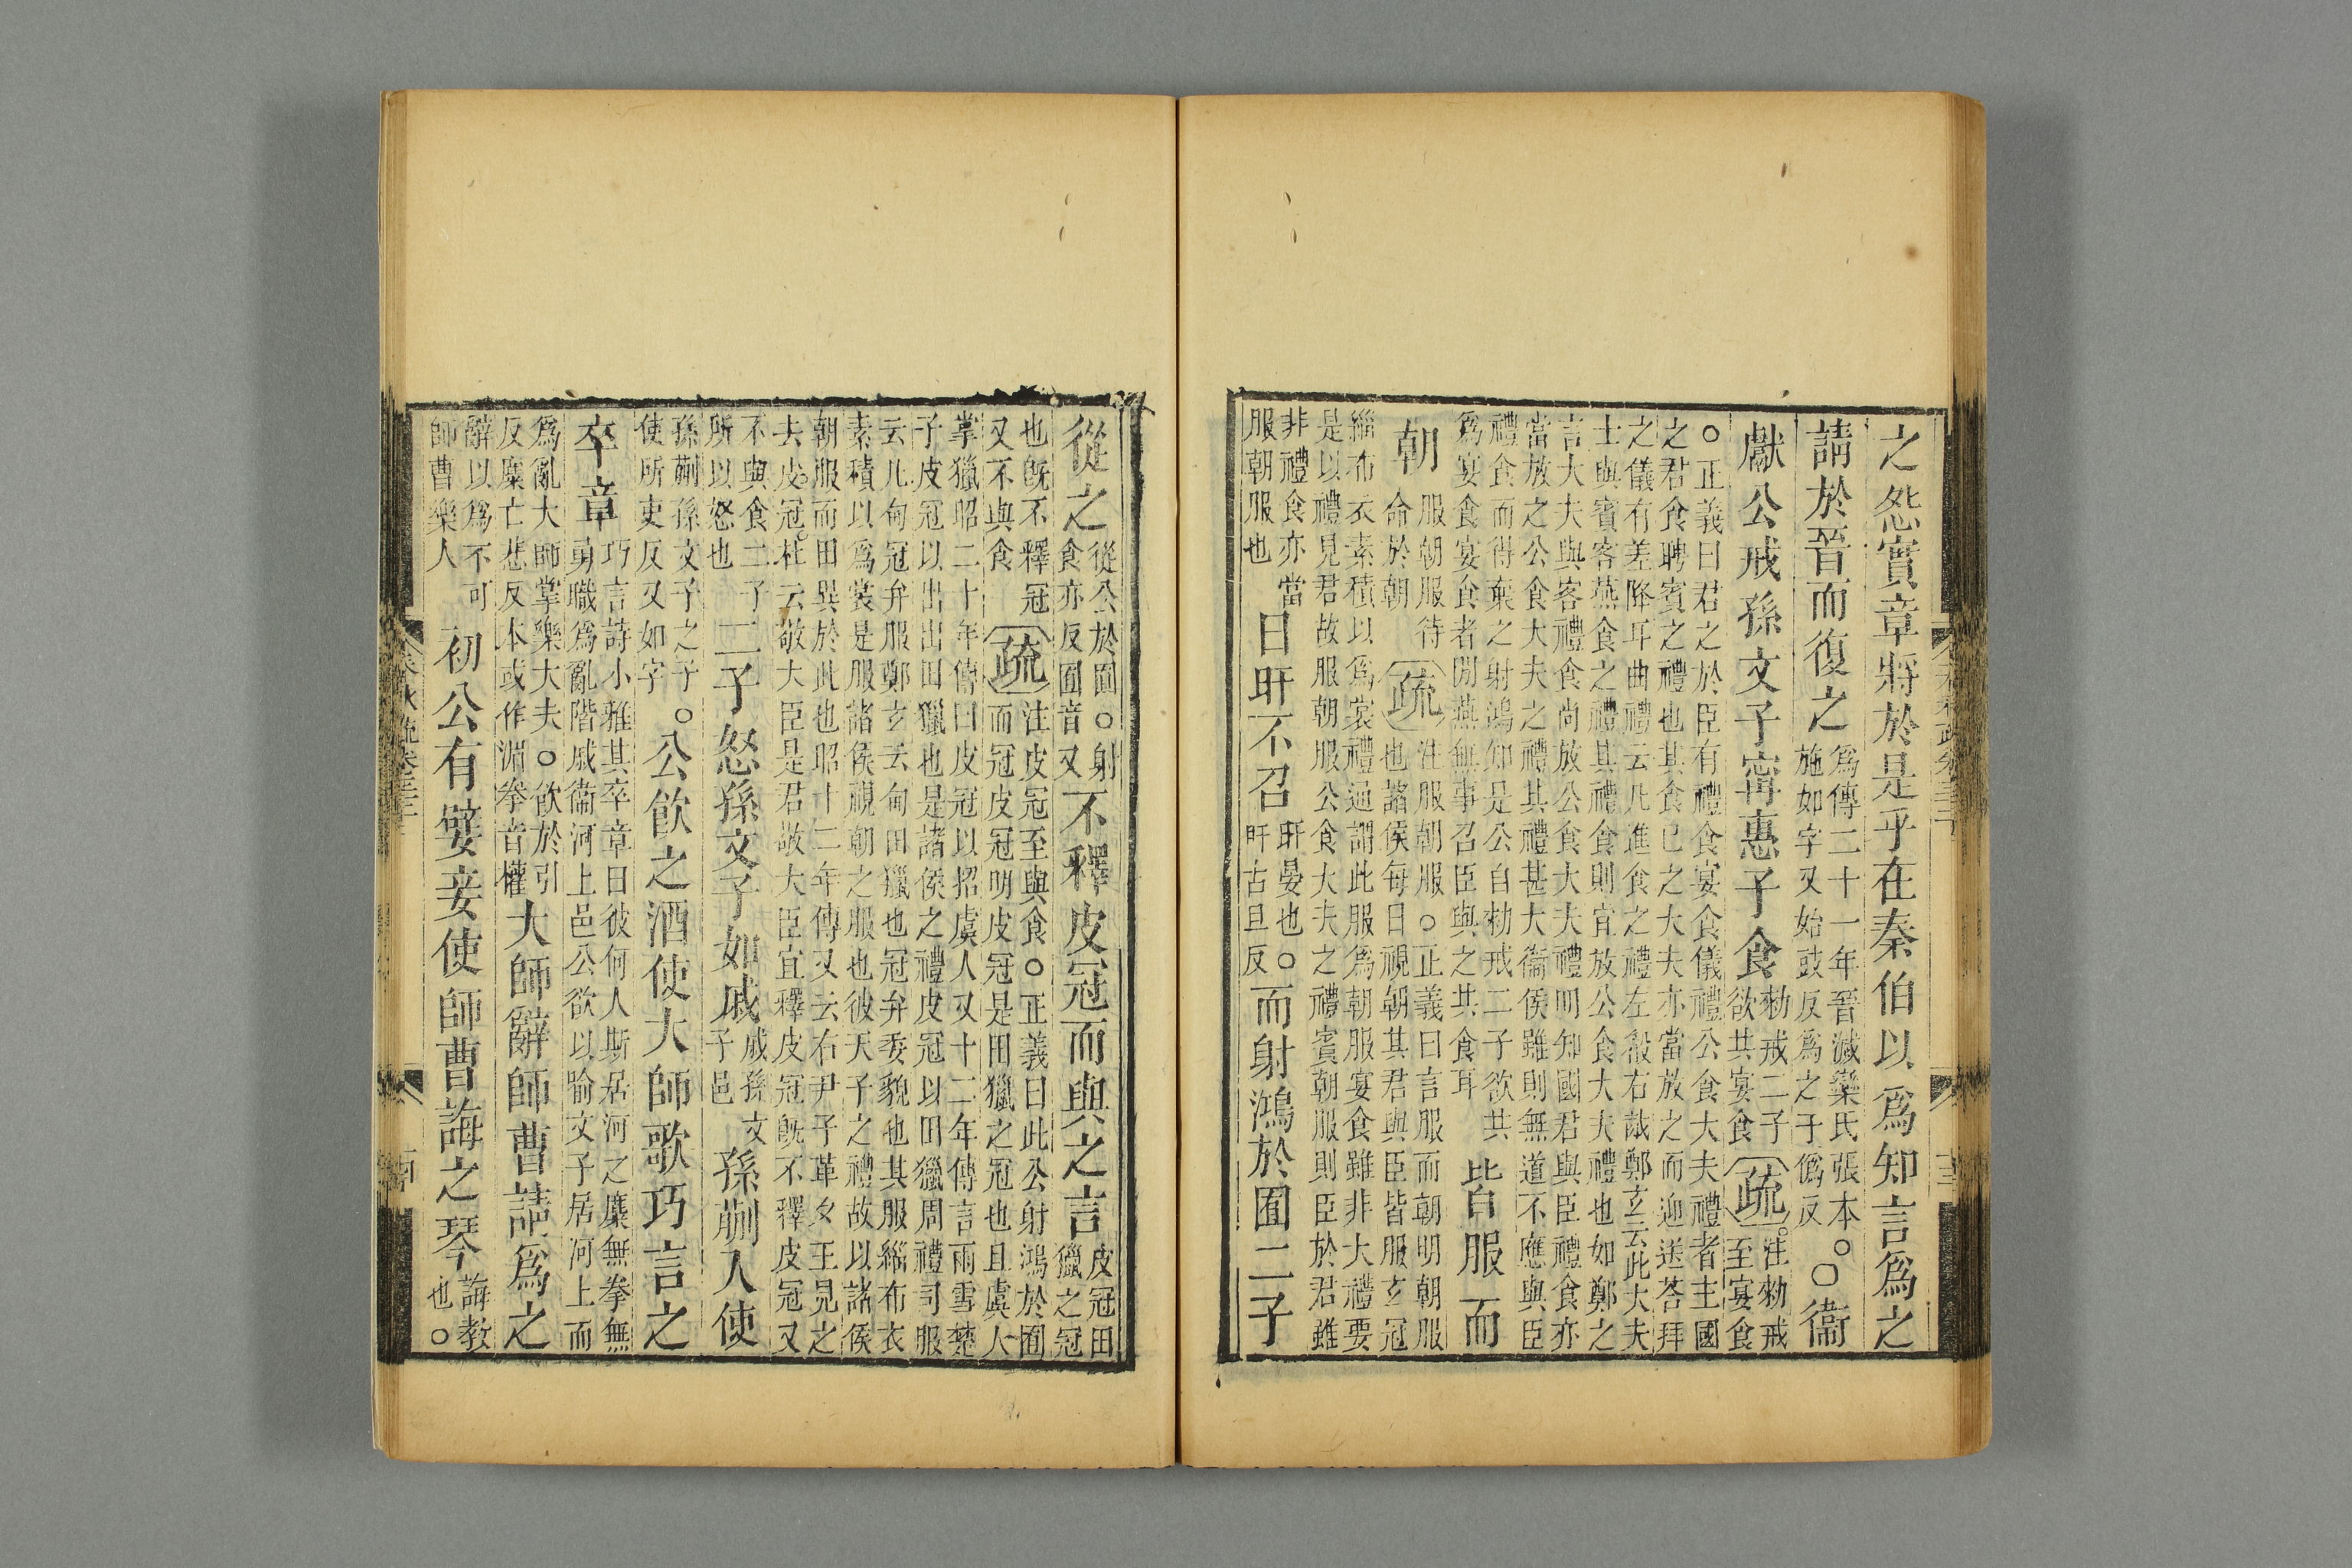 之怨實章將於是乎在秦伯以爲知言爲之
請於晉而復之
爲傳二十一年晉滅欒氏張本。
施如字又始豉反爲之于僞反
〇衞
獻公戒孫文子甯惠子食
勑戒二子
欲共宴食
疏
注勑戒
至宴食
○正義曰君之於臣有禮食宴食儀禮公食大夫禮者主國
之君食聘賓之禮也其食已之大夫亦當放之而迎送荅拜
之儀有差降耳曲禮云凡進食之禮左殽右胾鄭玄云此大夫
士與賓客燕食之禮其禮食則宜放公食大夫禮也如鄭之
言大夫與客禮食尚放公食大夫禮明知國君與臣禮食亦
當放之公食大夫之禮其禮甚大衞侯雖則無道不應與臣
禮食而得棄之射鴻知是公自勑戒二子欲共
爲宴食宴食者閒燕無事召臣與之共食耳
皆服而
朝
服朝服待
命於朝
疏
注服朝服○正義曰言服而朝明朝服
也諸侯每日視朝其君與臣皆服玄冠
緇布衣素積以爲裳禮通謂此服爲朝服宴食雖非大禮要
是以禮見君故服朝服公食大夫之禮賓朝服則臣於君雖
非禮食亦當
服朝服也
日旰不召
旰晏也○
旰古旦反
而射鴻於囿二子
從之
從公於囿○射
食亦反囿音又
不釋皮冠而與之言
皮冠田
獵之冠
也旣不釋冠
又不與食
疏
注皮冠至與食○正義曰此公射鴻於囿
而冠皮冠明皮冠是田獵之冠也且虞人
掌獵昭二十年傳曰皮冠以招虞人又十二年傳言雨雪楚
子皮冠以出出田獵也是諸侯之禮皮冠以田獵周禮司服
云凡甸冠弁服鄭玄云甸田獵也冠弁委貌也其服緇布衣
素積以爲裳是服諸侯視朝之服也彼天子之禮故以諸侯
朝服而田異於此也昭十二年傳又云右尹子革夕王見之
去皮冠杜云敬大臣是君敬大臣宜釋皮冠旣不釋皮冠又
不與食二子
所以怒也
二子怒孫文子如戚
戚孫文
子邑
孫蒯入使
孫蒯孫文子之子
使所吏反又如字
○公飮之酒使大師歌巧言之
卒章
巧言詩小雅其卒章曰彼何人斯居河之麋無拳無
勇職爲亂階戚衞河上邑公欲以喻文子居河上而
爲亂大師掌樂大夫○飮於引
反麋亡悲反本或作湄拳音權
大師辭師曹請爲之
辭以爲不可
師曹樂人
初公有嬖妾使師曹誨之琴
誨教
也○